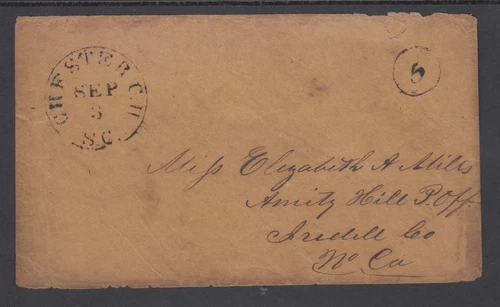 CHESTER C.H.
SEP
3
S.C.
5
Miss Elizabeth A Mills
Amity Hill P. Off.
Iredell Co
No Ca